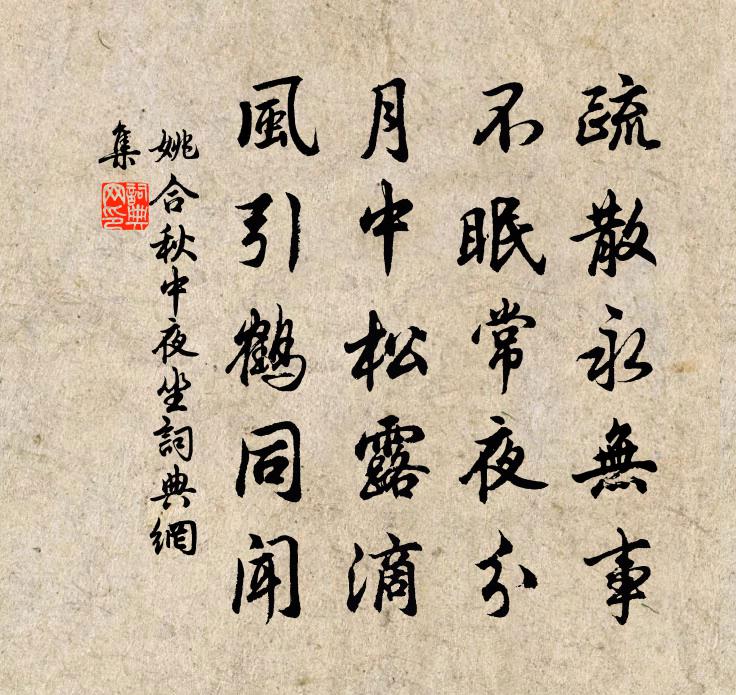 疏散永無事
不眠常夜分
月中松露滴
風引鶴同聞
姚合秋中夜坐詞典網
集
詞典網印